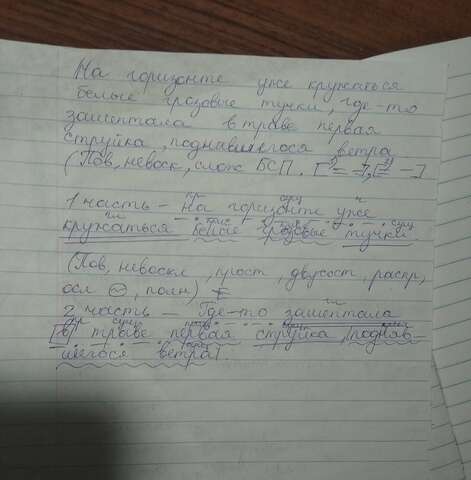 На горизонте уже кружаться
белые грозовые тучки, где-то
зашептала в траве первая
струйка, поднявшегося ветра
(Пов, невоск, слож БСП. [= -], [= -]
1 часть – На горизонте уже
кружаться белые грозовые тучки
(Пов, невоскл, прост, двусост, распр,
осл, полн)
2 часть – Где-то зашептала
в траве первая струйка, подняв-
шегося ветра.